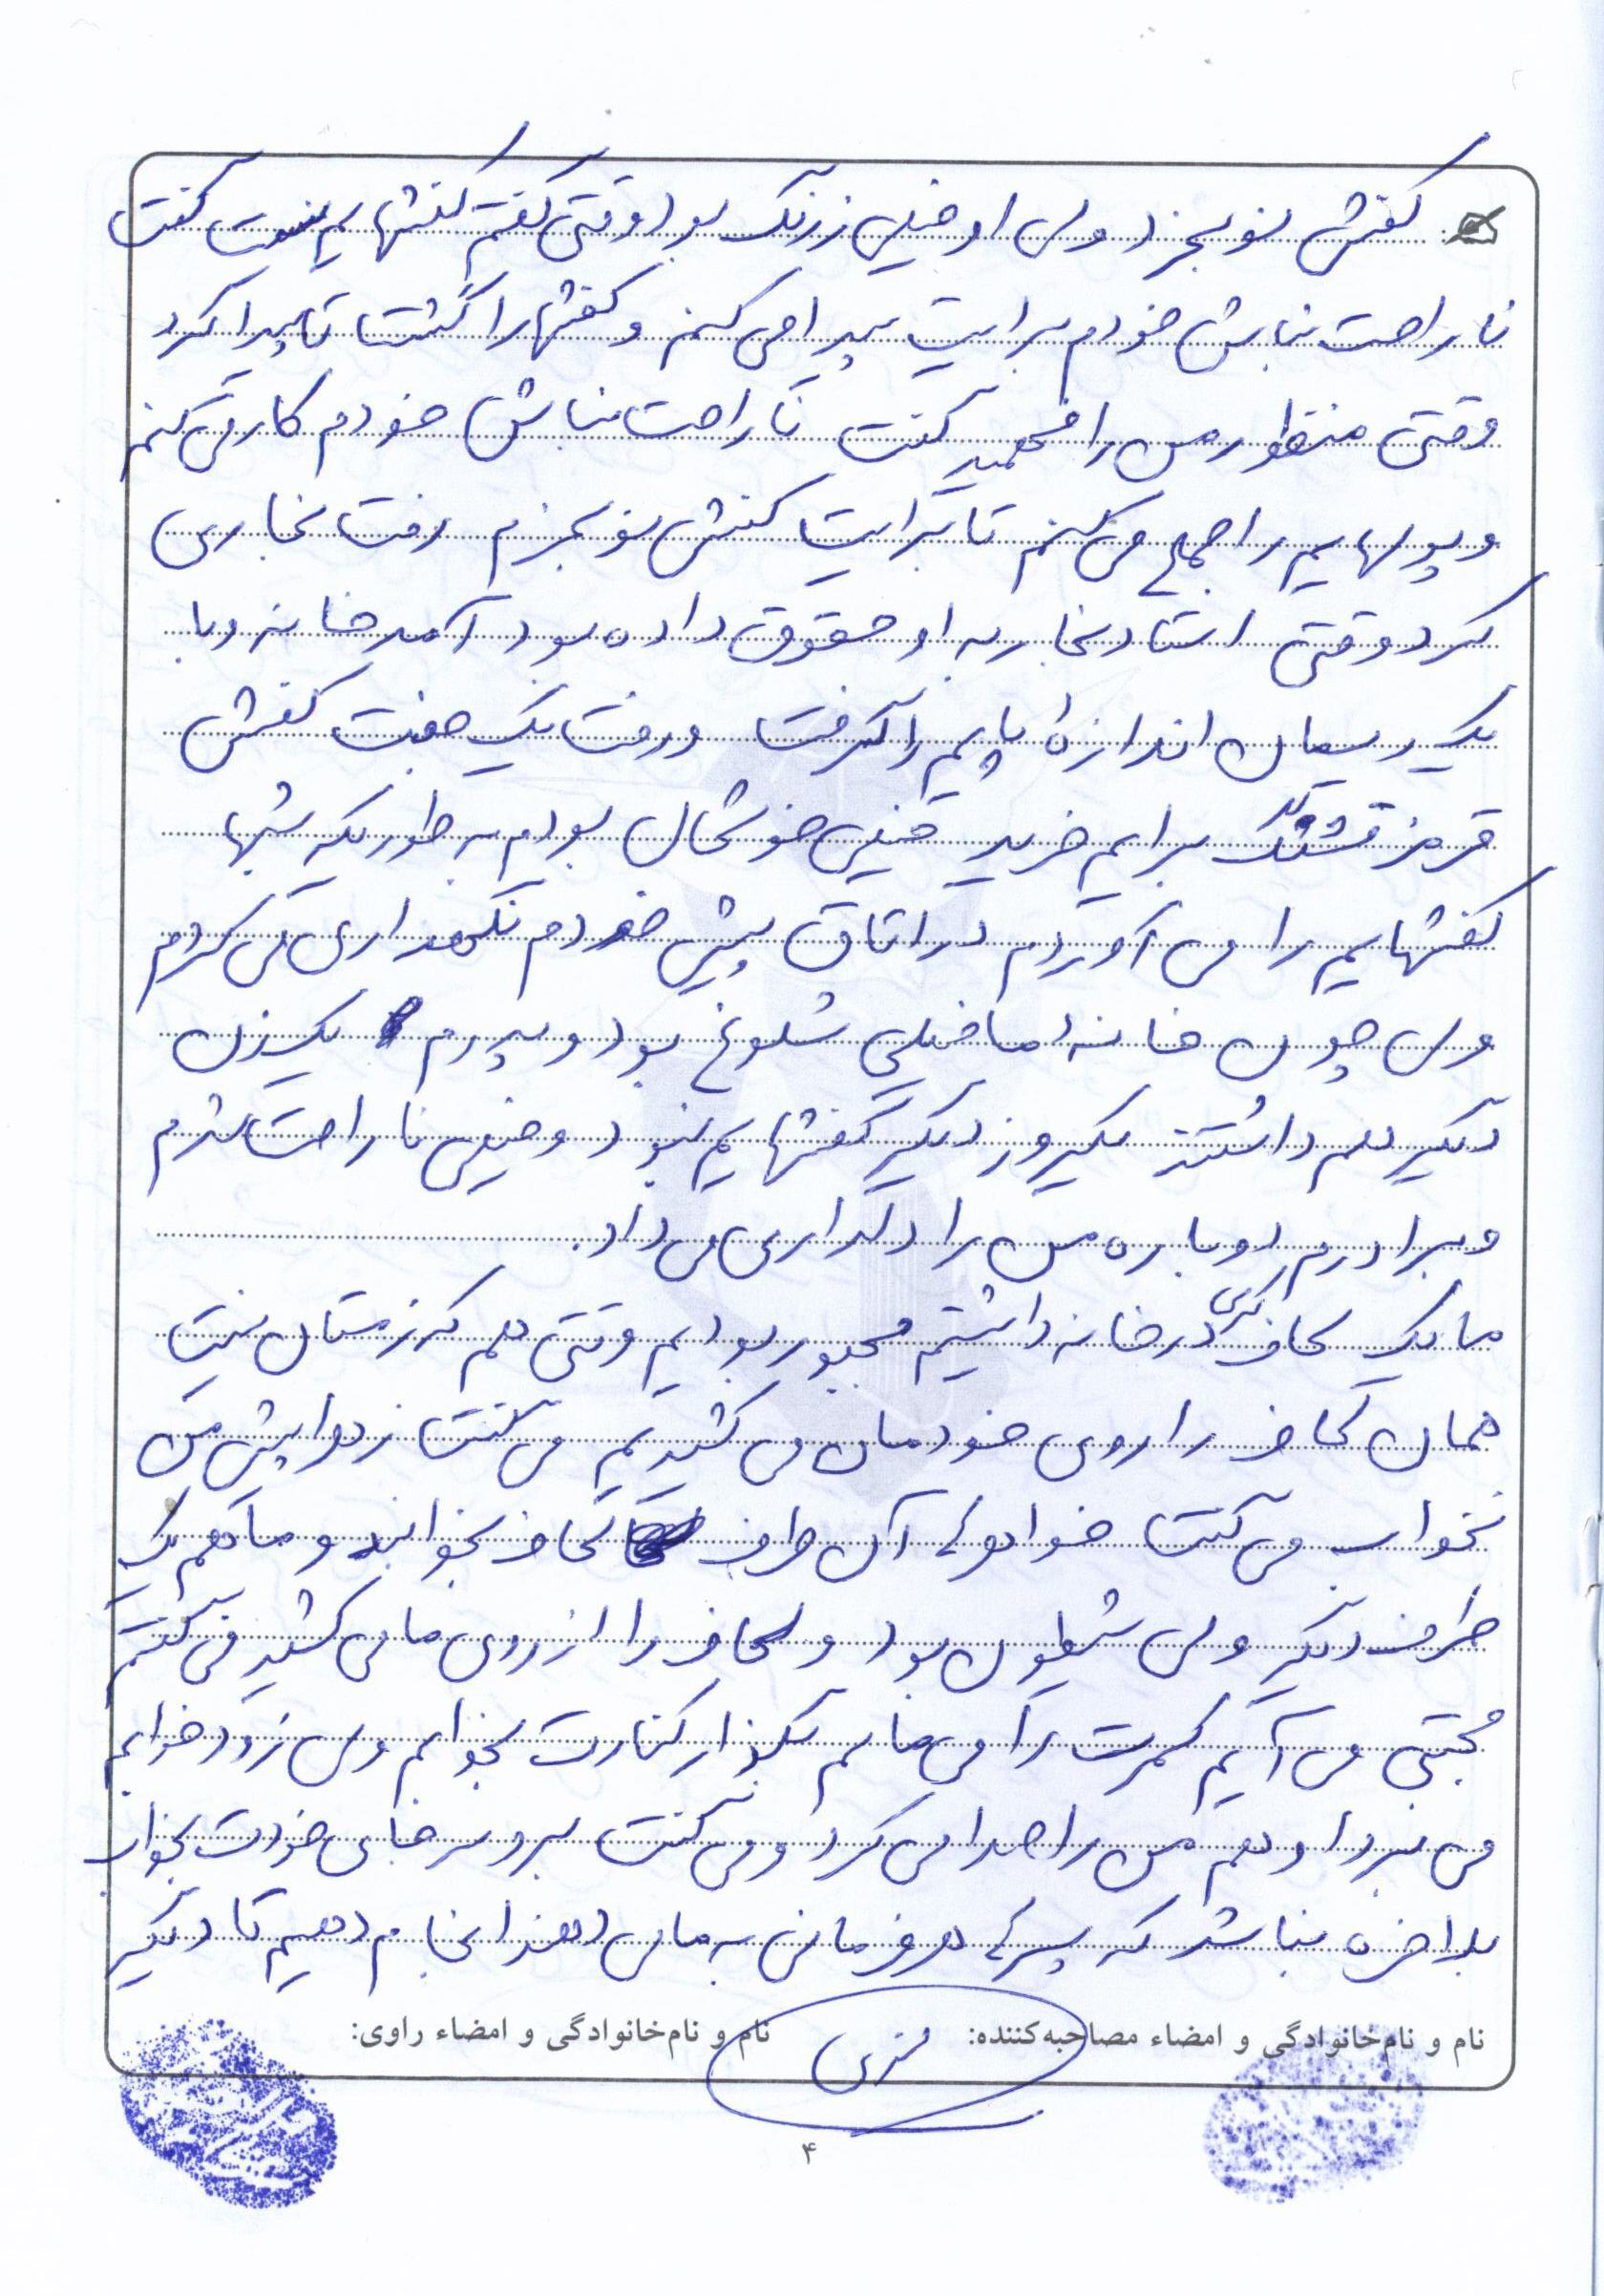 کفش نو بخرد ولی او خیلی زرنگ بود وقتی گفتم کفشهایم نیست گفت
ناراحت نباش خودم برایت پیدا می کنم و کفشها را گشت تا پیدا کرد
وقتی منظور من را فهمید گفت ناراحت نباش خودم کار می کنم
و پولهایم را جمع می کنم تا برایت کفش نو بخرم رفت نجاری
کرد وقتی استاد نجار به او حقوق داده بود آمد خانه و با
یک ریسمان اندازه پایم را گرفت و رفت یک جفت کفش
قرمز قشنگ برایم خرید خیلی خوشحال بودم به طوریکه شبها
کفشهایم را می آوردم در اتاق پیش خودم نگهداری می کردم
ولی چون خانه ما خیلی شلوغ بود و پدرم یک زن
دیگر هم داشتند یکروز دیگر کفشهایم نبود و خیلی ناراحت شدم
و برادرم دوباره من را دلداری می داد.
ما یک لحاف کرسی در خانه داشتیم مجبور بودیم وقتی هم که زمستان نیست
همان لحاف را روی خودمان می کشیدیم می گفت زهرا پیش من
نخواب می گفت خواهر آن طرف لحاف بخوابد و ما هم یک
طرف دیگر ولی شیطون بود و لحاف را از روی ما می کشید می گفتم
مجتبی می آیم کمرت را می مالم بگذار کنارت بخوابم ولی زود خوابم
می برد او هم من را صدا می کرد و می گفت برو سر جای خودت بخواب
بلاخره نباشد که پسر هر فرمانی به ما می دهد انجام دهیم تا دیگر
نام و نام‌خانوادگی و امضاء مصاحبه‌کننده:
نام و نام‌خانوادگی و امضاء راوی:
۴